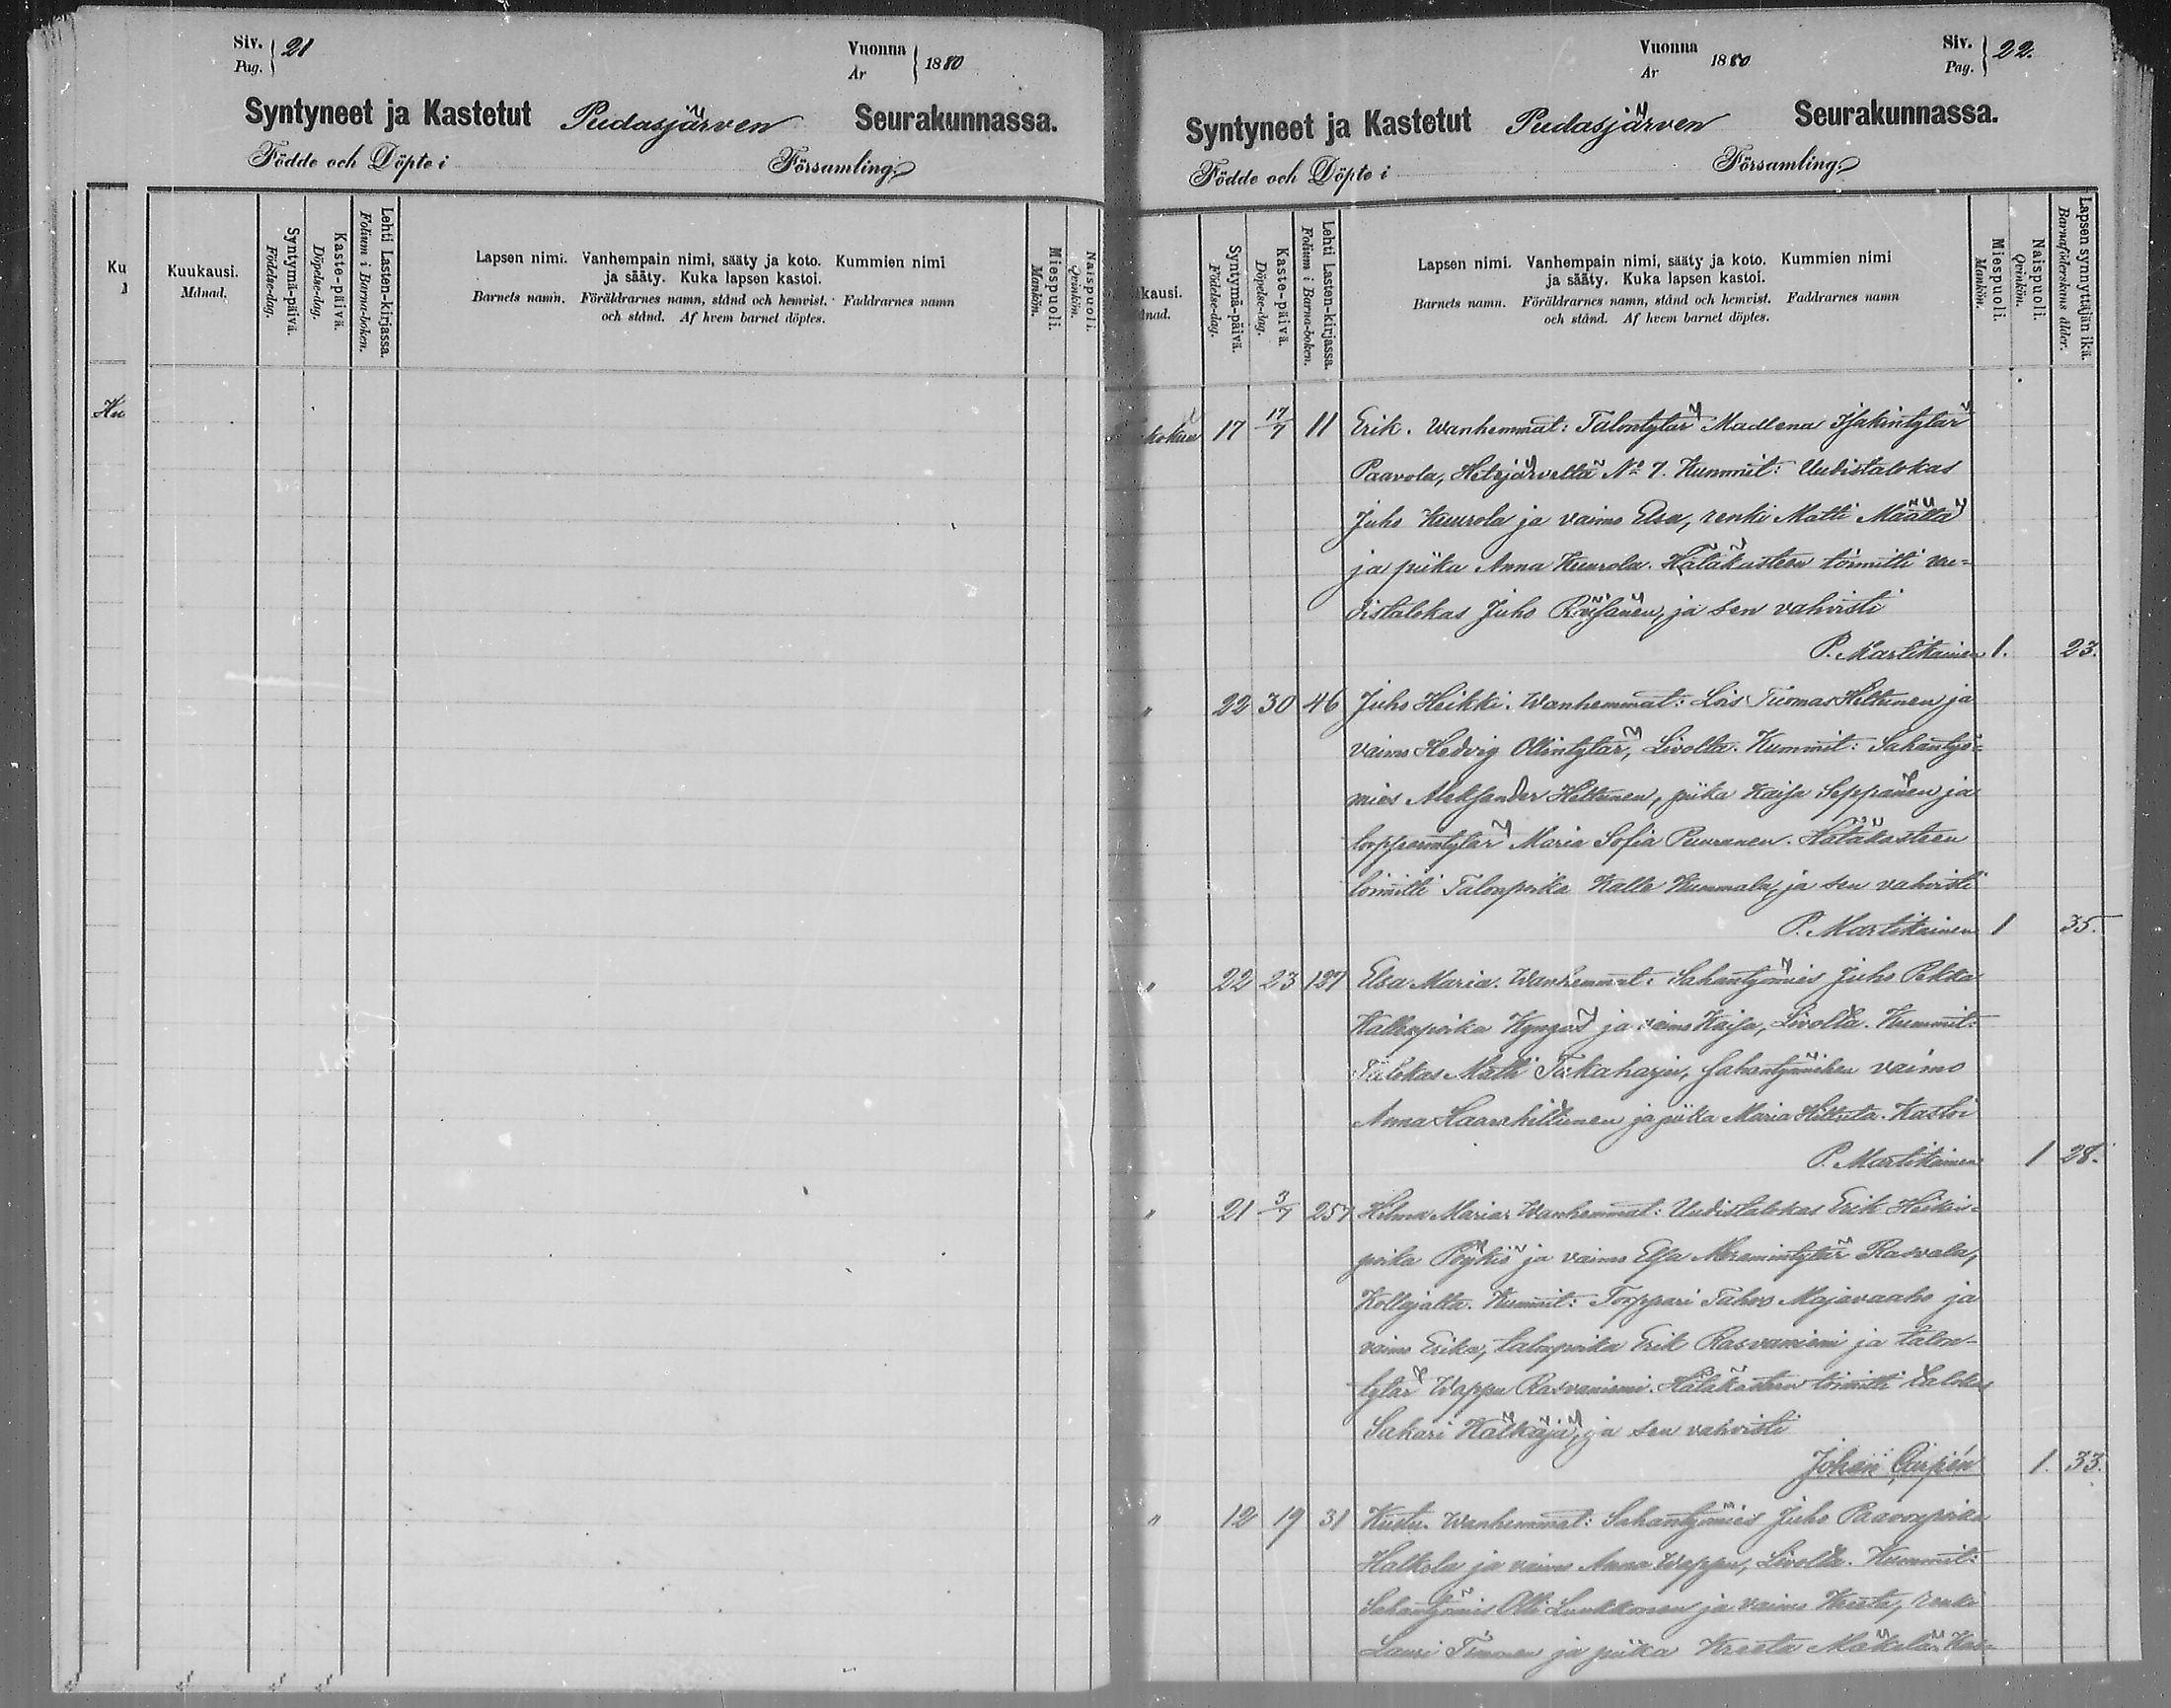 Siv. 21
Pag.
Vuonna 1880
År
Syntyneet ja Kastetut Pudasjärven Seurakunnassa.
Födde och Döpte i Församling.
Ku
Kuukausi.
Månad.
Syntymä-päivä.
Födelse-dag.
Kaste-päivä.
Döpelse-dag.
Lehti Lasten-kirjassa.
Folium i Barna-boken.
Lapsen nimi. Vanhempain nimi, sääty ja koto. Kummien nimi
ja sääty. Kuka lapsen kastoi.
Barnets namn. Föräldrarnes namn, stånd och hemvist. Faddrarnes namn
och stånd. Af hvem barnet döptes.
Miespuoli.
Mankön.
Naispuoli.
Qvinkön.
Vuonna 1880
År
Siv. 22.
Pag.
Syntyneet ja Kastetut Pudasjärven Seurakunnassa.
Födde och Döpte i Församling.
kausi.
ånad.
Syntymä-päivä.
Födelse-dag.
Kaste-päivä.
Döpelse-dag.
Lehti Lasten-kirjassa.
Folium i Barna-boken.
Lapsen nimi. Vanhempain nimi, sääty ja koto. Kummien nimi
ja sääty. Kuka lapsen kastoi.
Barnets namn. Föräldrarnes namn, stånd och hemvist. Faddrarnes namn
och stånd. Af hvem barnet döptes.
Miespuoli.
Mankön.
Naispuoli.
Qvinkön.
Lapsen synnyttäjän ikä.
Barnaföderskans ålder.
kokuu 17 17/7 11 Erik. Wanhemmat: Talontytär Madlena Isakintytär
Paavola, Hetejärveltä No 7. Kummit: Uudistalokas
Juho Kuurola ja vaimo Elsa, renki Matti Määttä
ja piika Anna Kuurola. Hätäkasteen toimitti uu-
distalokas Juho Räisänen, ja sen vahvisti
P. Martikainen 1. 23.
" 22 30 46 Juho Heikki. Wanhemmat: Lois Tuomas Hiltunen ja
vaimo Hedvig Ollintytär, Livolta. Kummit: Sahantyö-
mies Aleksander Hiltunen, piika Kaisa Seppänen ja
torpparintytär Maria Sofia Puuranen. Hätäkasteen
toimitti Talonpoika Kalle Kummala, ja sen vahvisti
P. Martikainen 1 35.
" 22 23 127 Elsa Maria. Wanhemmat: Sahantyömies Juho Pekka
Kallenpoika Kyngäs ja vaimo Kaisa, Livolta. Kummit:
Talokas Matti Takaharju, sahantyömiehen vaimo
Anna Haarahiltunen ja piika Maria Hiltula. Kastoi
P. Martikainen 1 28.
" 21 3/7 257 Hilma Maria. Wanhemmat: Uudistalokas Erik Heikin-
poika Pöykiö ja vaimo Elsa Abramintytär Rasvala,
Kollajalta. Kummit: Torppari Tahvo Majavaaho ja
vaimo Erika, talonpoika Erik Rasvaniemi ja talon-
tytär Wappu Rasvaniemi. Hätäkasteen toimitti talokas
Sakari Kälkäjä, ja sen vahvisti
Johan 1. 33.
" 12 19 31 Kustu. Wanhemmat: Sahantyömies Juho Paavonpoika
Halkola ja vaimo Anna Wappu, Livolta. Kummit:
Sahantyömies Olli Luukkonen ja vaimo Kreeta, renki
Lauri Timonen ja piika Kreeta Mäkelä. Kas-